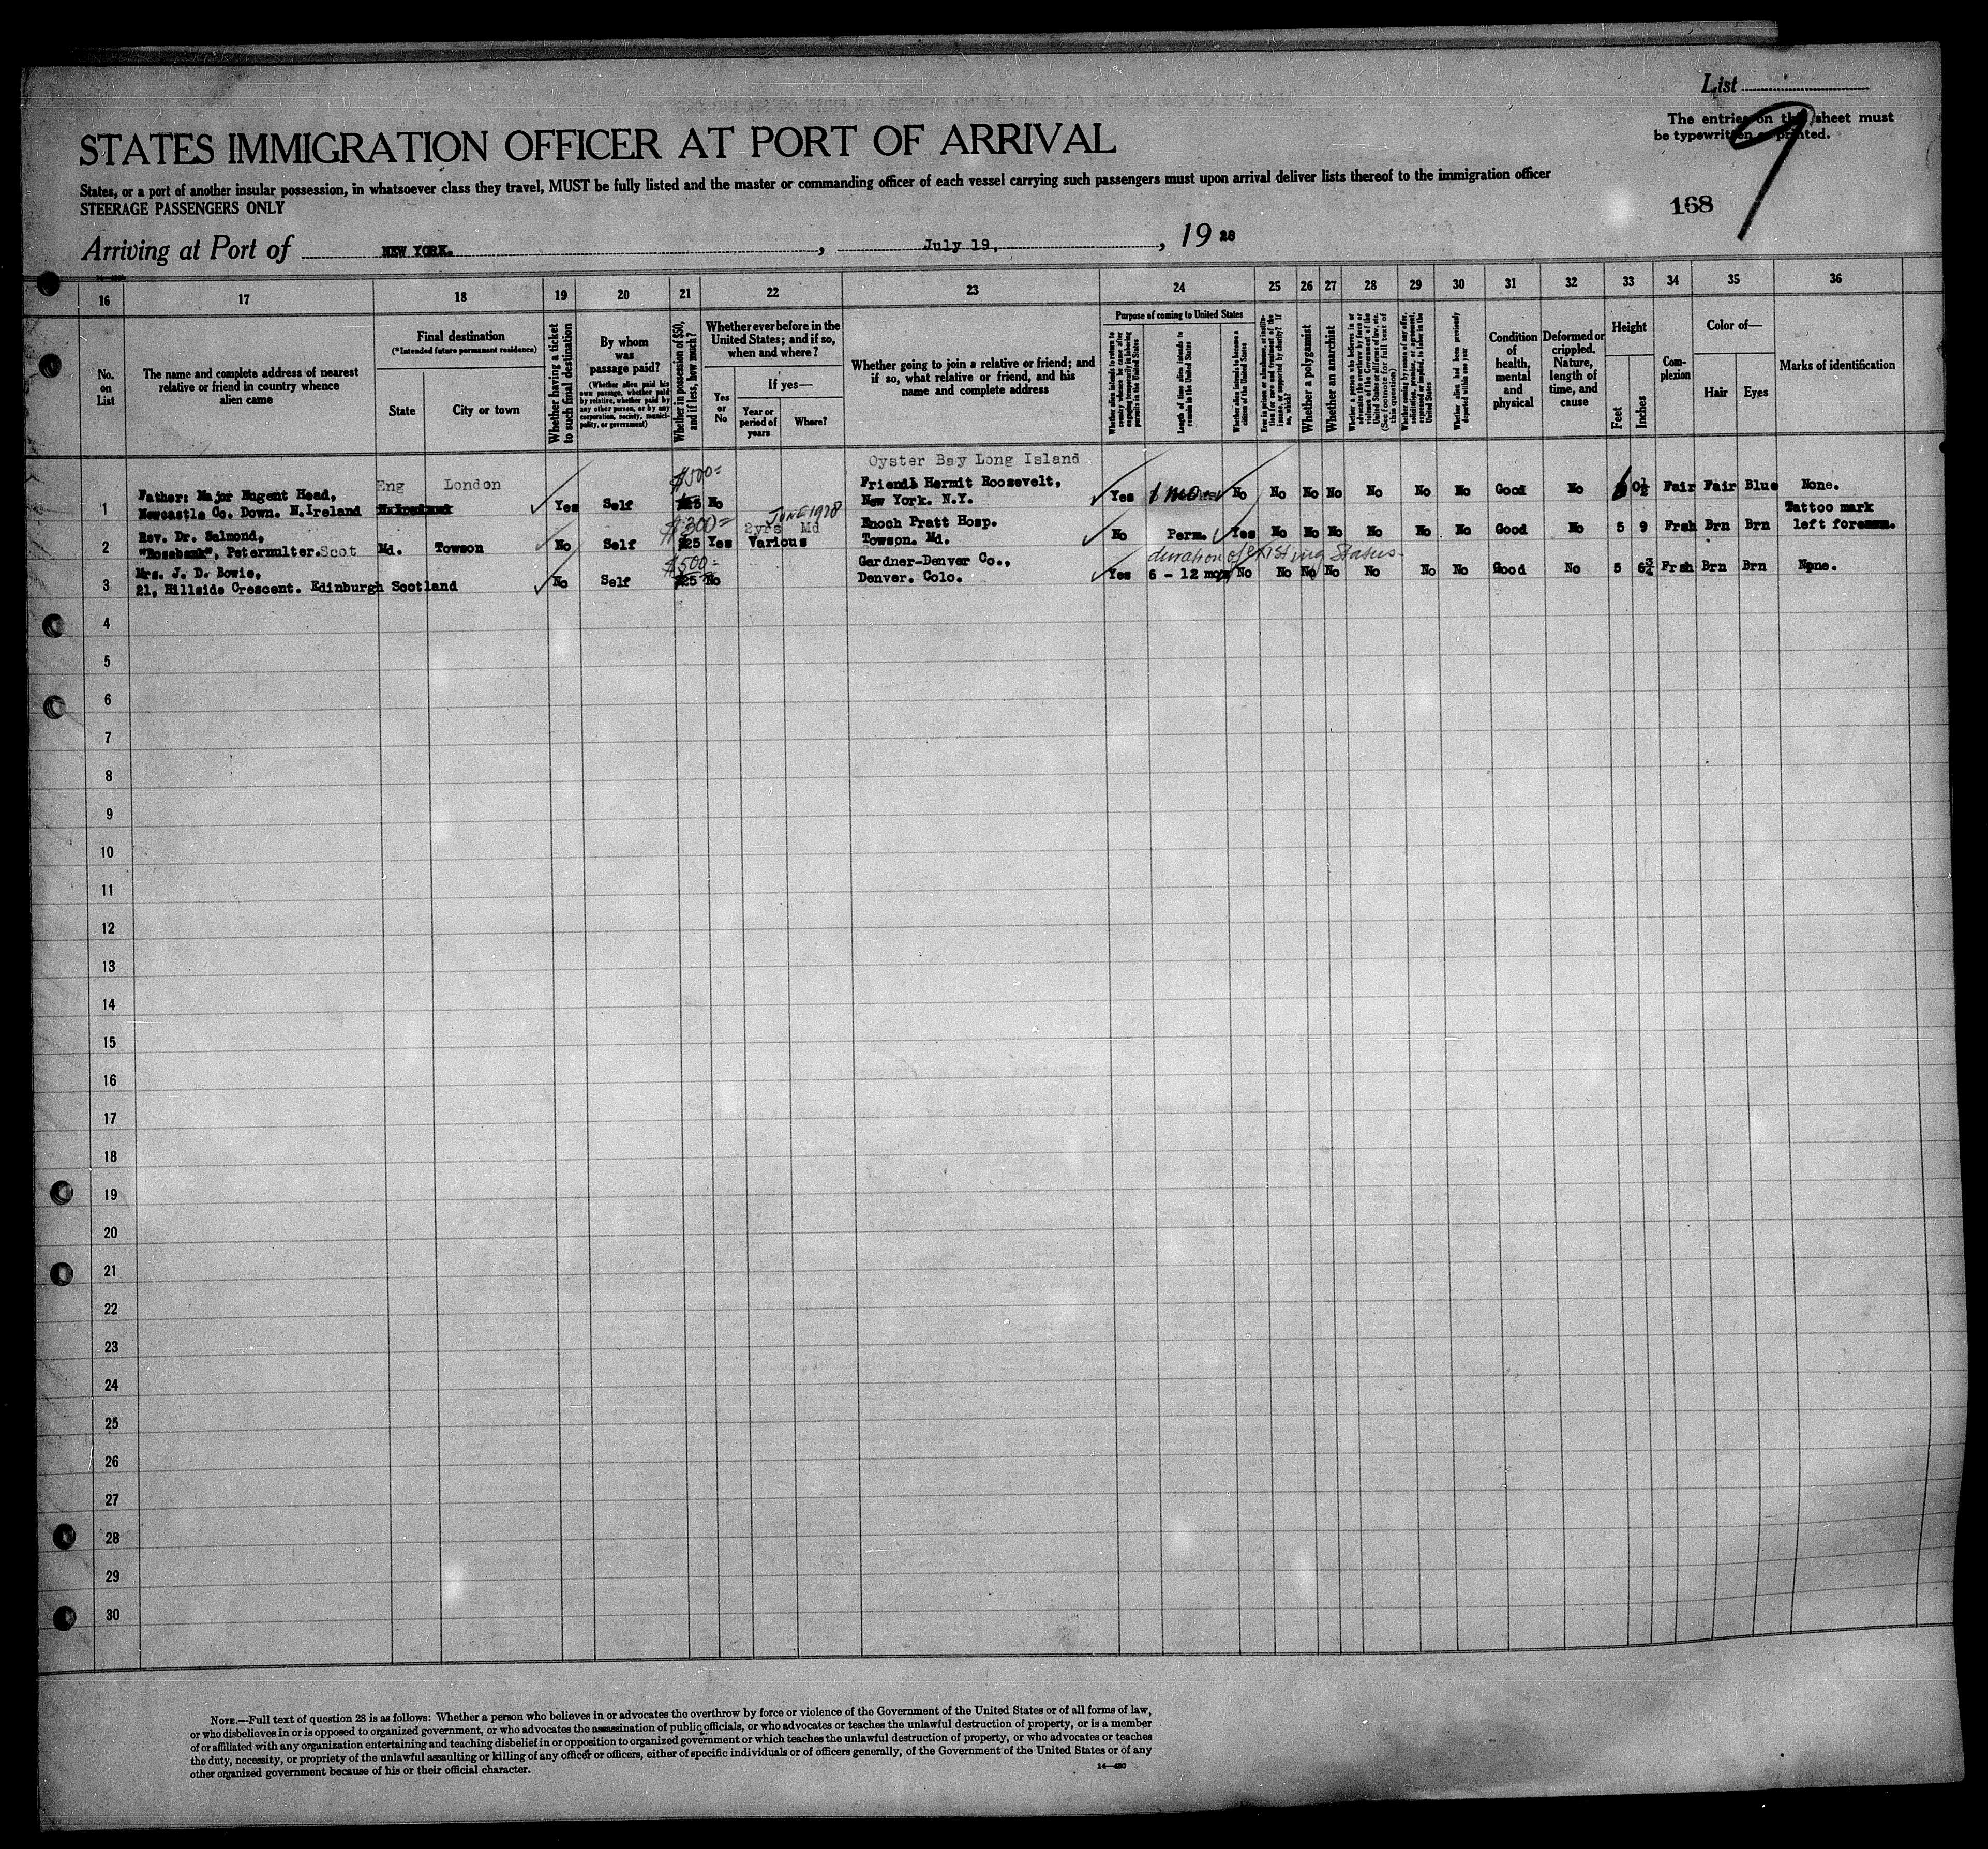 List
The entries on this sheet must
be typewritten or printed.
STATES IMMIGRATION OFFICER AT PORT OF ARRIVAL
States, or a port of another insular possession, in whatsoever class they travel, MUST be fully listed and the master or commanding officer of each vessel carrying such passengers must upon arrival deliver lists thereof to the immigration officer
STEERAGE PASSENGERS ONLY
168
Arriving at Port of NEW YORK. , July 19, , 19 28
16 17 18 19 20 21 22 23 24 25 26 27 28 29 30 31 32 33 34 35 36
No. on List
The name and complete address of nearest relative or friend in country whence alien came
Final destination
(*Intended future permanent residence)
State
City or town
Whether having a ticket to such final destination
By whom was passage paid?
(Whether alien paid his own passage, whether paid by relative, whether paid by any other person, or by any corporation, society, municipality, or government)
Whether in possession of $50, and if less, how much?
Whether ever before in the United States; and if so, when and where?
Yes or No
If yes—
Year or period of years
Where?
Whether going to join a relative or friend; and if so, what relative or friend, and his name and complete address
Purpose of coming to United States
Whether alien intends to return to country whence he came after engaging temporarily in laboring pursuits in the United States
Length of time alien intends to remain in the United States
Whether alien intends to become a citizen of the United States
Ever in prison or almshouse, or institution for care and treatment of the insane, or supported by charity? If so, which?
Whether a polygamist
Whether an anarchist
Whether a person who believes in or advocates the overthrow by force or violence of the Government of the United States or all forms of law, etc. (See footnote for full text of this question)
Whether coming by reason of any offer, solicitation, promise, or agreement, expressed or implied, to labor in the United States
Whether alien had been previously deported within one year
Condition of health, mental and physical
Deformed or crippled. Nature, length of time, and cause
Height
Feet
Inches
Complexion
Color of—
Hair
Eyes
Marks of identification
Eng London $500= Oyster Bay Long Island
1 Father: Major Nugent Head, Newcastle Co. Down. N.Ireland Yes Self No Friend: Kermit Roosevelt, New York. N.Y. Yes 1 mo No No No No No No No Good No 6 0½ Fair Fair Blue None.
2 Rev. Dr. Salmond, "Rosebank", Petermulter. Scot Md. Towson No Self $300= $25 Yes 2yrs Md JUNE 1928 Various Enoch Pratt Hosp. Towson. Md. No Perm. Yes No No No No No No Good No 5 9 Frsh Brn Brn Tattoo mark left forearm.
duration of existing Status
3 Mrs. J. D. Bowie, 21, Hillside Crescent. Edinburgh Scotland No Self $500= $25 No Gardner-Denver Co., Denver. Colo. Yes 6 - 12 mos No No No No No No No Good No 5 6¾ Frsh Brn Brn None.
4
5
6
7
8
9
10
11
12
13
14
15
16
17
18
19
20
21
22
23
24
25
26
27
28
29
30
NOTE.—Full text of question 28 is as follows: Whether a person who believes in or advocates the overthrow by force or violence of the Government of the United States or of all forms of law,
or who disbelieves in or is opposed to organized government, or who advocates the assassination of public officials, or who advocates or teaches the unlawful destruction of property, or is a member
of or affiliated with any organization entertaining and teaching disbelief in or opposition to organized government or which teaches the unlawful destruction of property, or who advocates or teaches
the duty, necessity, or propriety of the unlawful assaulting or killing of any officer or officers, either of specific individuals or of officers generally, of the Government of the United States or of any
other organized government because of his or their official character.
14—430